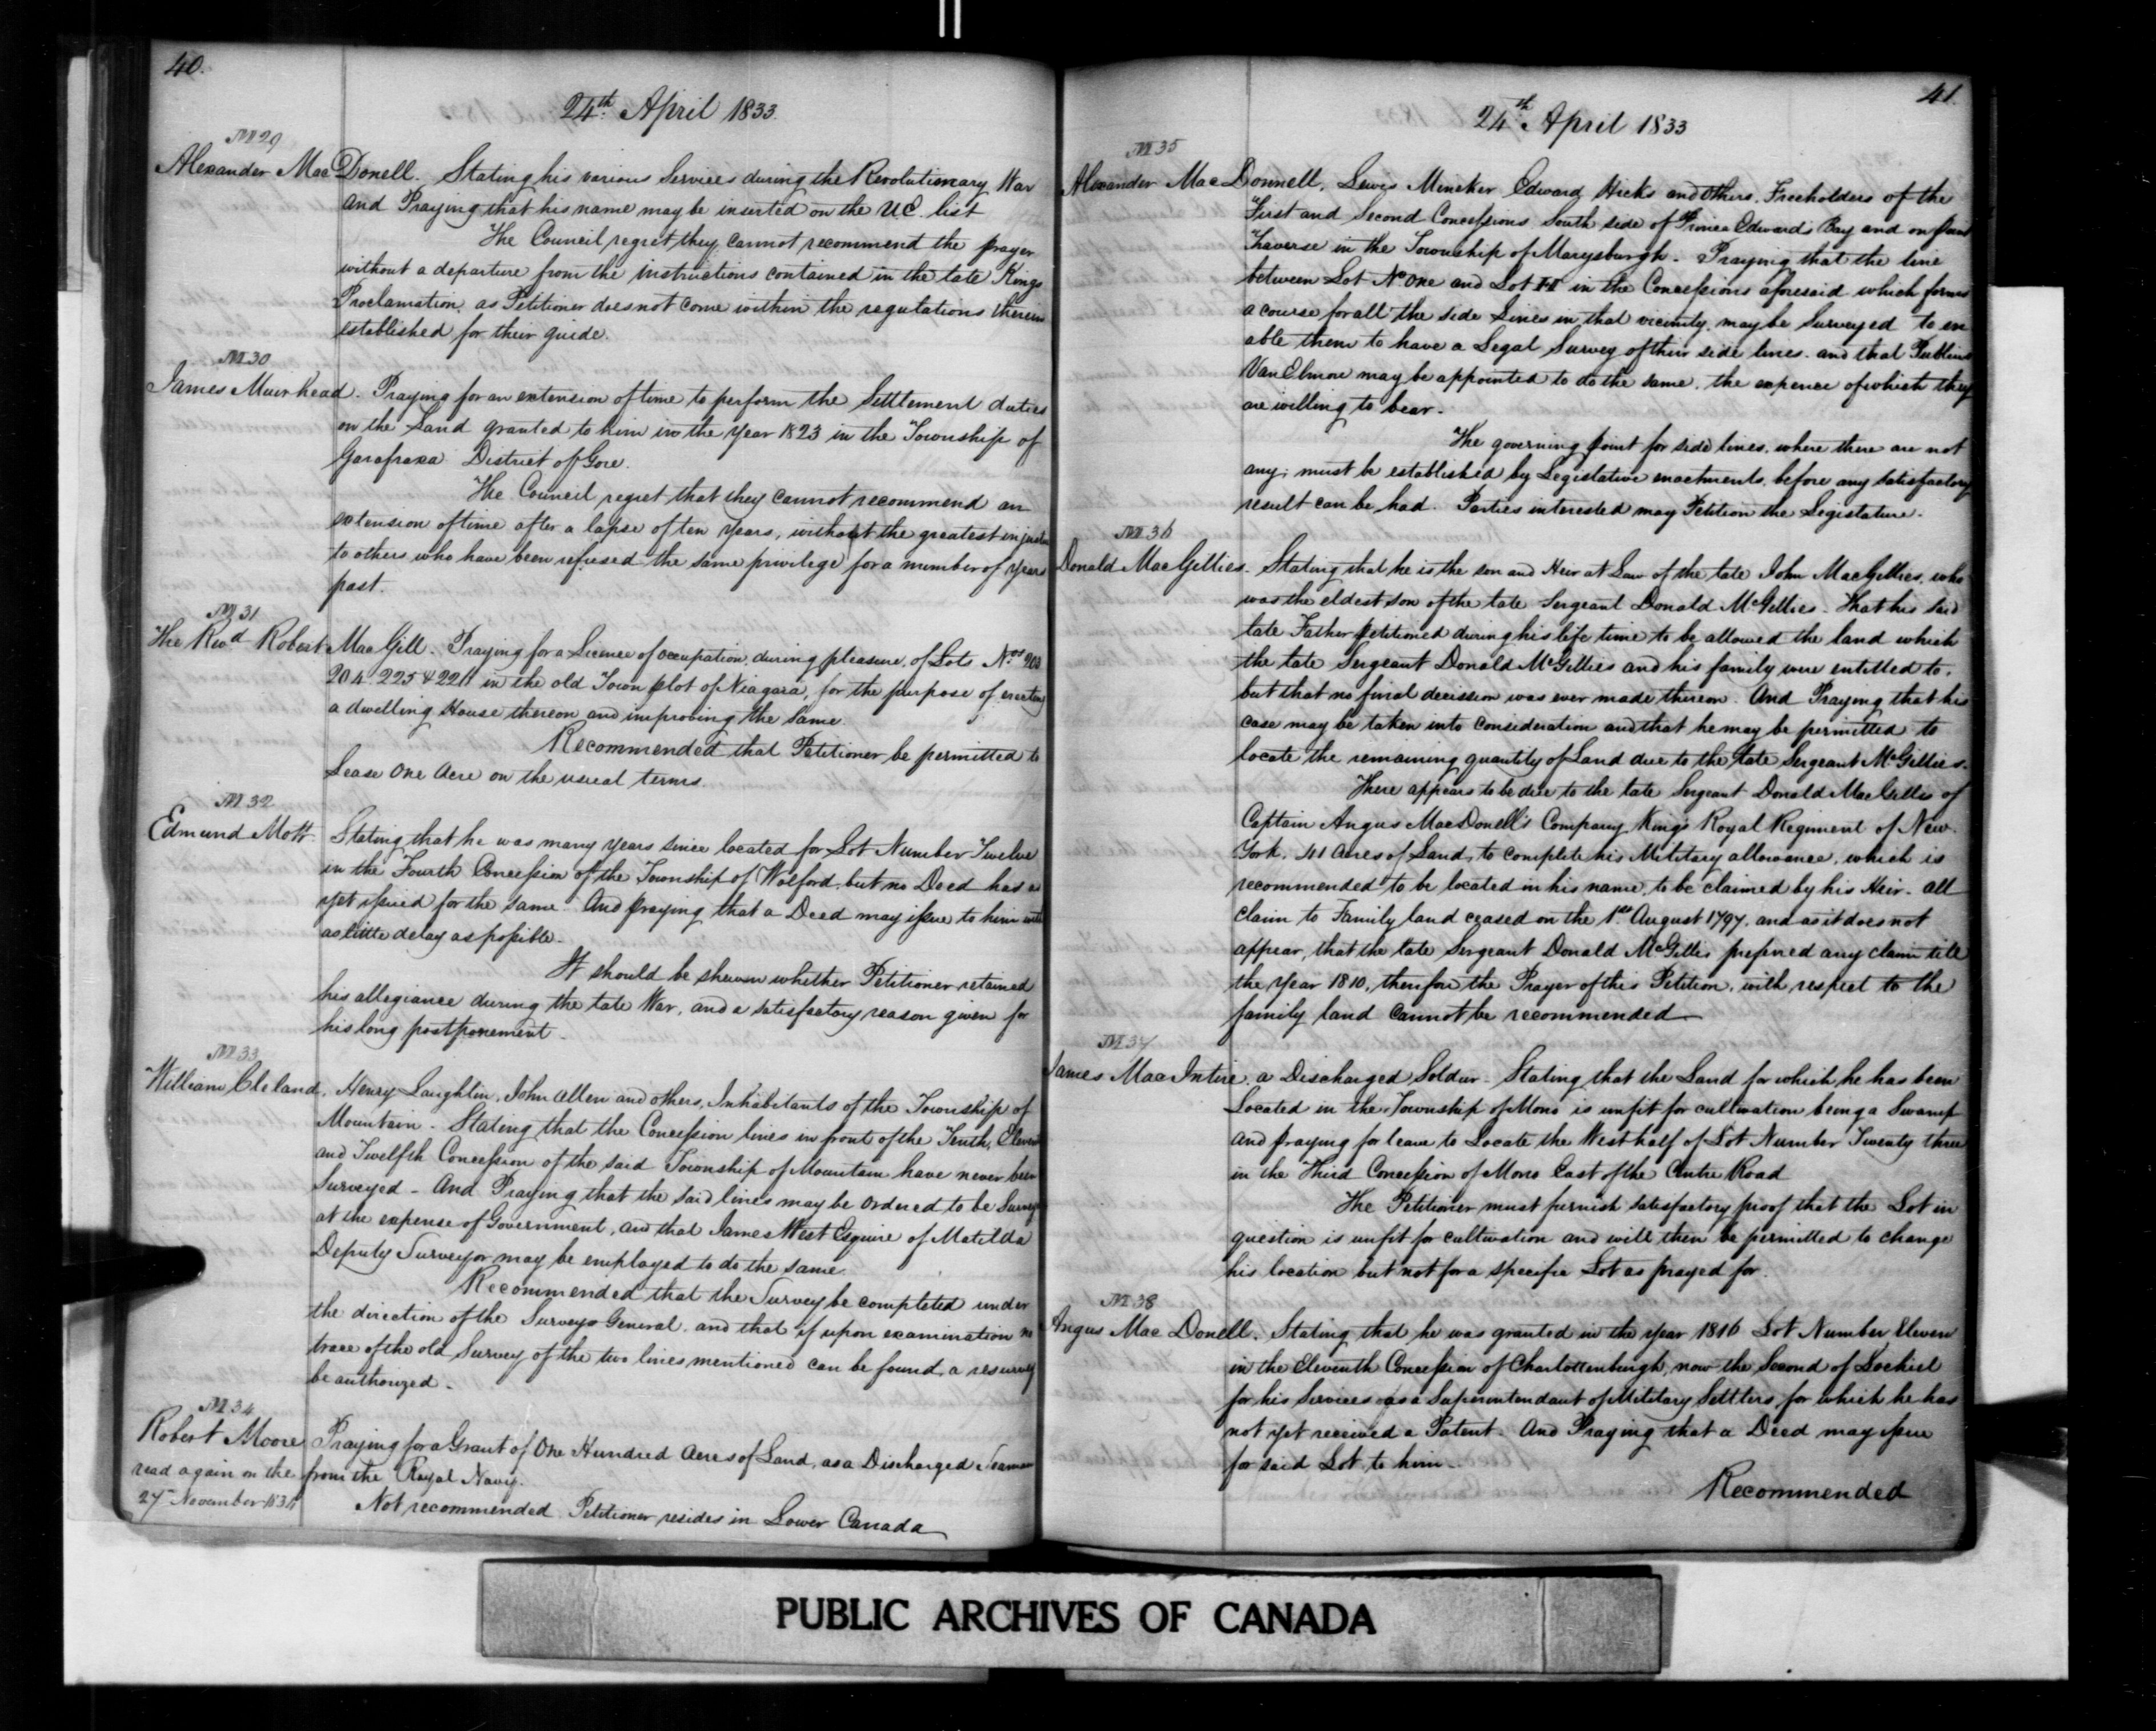 40.
24th April 1833.
M 29
Alexander MacDonell. Stating his various Services during the Revolutionary War
and Praying that his name may be inserted on the U.E. list
The Council regret they cannot recommend the prayer
without a departure from the instructions contained in the late Kings
Proclamation, as Petitioner does not come within the regulations therein
established for their guide.
M 30
James Muirhead. Praying for an extension of time to perform the Settlement duties
on the Land granted to him in the year 1823 in the Township of
Garafraxa District of Gore.
The Council regret that they cannot recommend an
extension of time after a lapse of ten years, without the greatest injustice
to others who have been refused the same privilege for a number of years
past.
M 31
The Revd Robert MacGill. Praying for a Licence of occupation during pleasure, of Lots Nos 203
204. 225 & 226 in the old Town plot of Niagara, for the purpose of erecting
a dwelling House thereon and improving the same
Recommended that Petitioner be permitted to
Lease One Acre on the usual terms.
M 32
Edmund Mott. Stating that he was many years since located for Lot Number Twelve
in the Fourth Concession of the Township of Wolford, but no Deed has as
yet issued for the same. And praying that a Deed may issue to him with
as little delay as possible.
It should be shewn whether Petitioner retained
his allegiance during the late War, and a satisfactory reason given for
his long postponement.
M 33
William Cleland, Henry Laughlin, John Allen and others, Inhabitants of the Township of
Mountain. Stating that the Concession lines in front of the Tenth, Eleventh
and Twelfth Concession of the said Township of Mountain have never been
Surveyed - And Praying that the said lines may be ordered to be Surveyed
at the expense of Government, and that James West Esquire of Matilda
Deputy Surveyor may be employed to do the same.
Recommended that the Survey be completed under
the direction of the Surveyor General. and that if upon examination no
trace of the old Survey of the two lines mentioned can be found, a resurvey
be authorized.
M 34
Robert Moore Praying for a Grant of One Hundred Acres of Land, as a Discharged Seaman
read again on the from the Royal Navy.
27 November
Not recommended Petitioner resides in Lower Canada
41.
24th April 1833
M 35
Alexander MacDonnell, Lewis Mineker Edward Hicks and others, Freeholders of the
First and Second Concessions South side of Prince Edwards Bay and on Point
Traverse in the Township of Marysburgh. Praying that the line
between Lot No One and Lot II in the Concessions aforesaid which forms
a course for all the side Lines in that vicinity may be Surveyed to en
able them to have a Legal Survey of their side lines. and that Publius
Van Elmore may be appointed to do the same, the expence of which they
are willing to bear.
The governing point for side lines, where there are not
any, must be established by Legislative enactments, before any satisfactory
result can be had. Parties interested may Petition the Legislature.
M 36
Donald MacGillies. Stating that he is the son and Heir at Law of the late John MacGillies, who
was the eldest son of the late Sergeant Donald McGillies. That his said
late Father petitioned during his life time to be allowed the land which
the late Sergeant Donald McGillies and his family were entitled to,
but that no final decission was ever made thereon. And Praying that his
case may be taken into consideration and that he may be permitted to
locate the remaining quantity of Land due to the late Sergeant McGillies.
There appears to be due to the late Sergeant Donald MacGillis of
Captain Angus MacDonell's Company Kings Royal Regiment of New
York, 41 Acres of Land, to complete his Military allowance, which is
recommended to be located in his name, to be claimed by his Heir. All
claim to Family land ceased on the 1st August 1797. and as it does not
appear, that the late Sergeant Donald McGillis prefered any claim till
the year 1810, therefore the Prayer of this Petition, with respect to the
family land cannot be recommended
M 37
James MacIntire a Discharged Soldier. Stating that the Land for which he has been
Located in the Township of Mono is unfit for cultivation being a Swamp
and praying for leave to Locate the West half of Lot Number Twenty three
in the Third Concession of Mono East of the Centre Road
The Petitioner must furnish satisfactory proof that the Lot in
question is unfit for cultivation and will then be permitted to change
his location but not for a specific Lot as prayed for.
M 38
Angus MacDonell. Stating that he was granted in the year 1816 Lot Number Eleven
in the Eleventh Concession of Charlottenburgh, now the Second of Lochiel
for his Services as a Superintendant of Military Settlers, for which he has
not yet received a Patent. And Praying that a Deed may issue
for said Lot to him.
Recommended
PUBLIC ARCHIVES OF CANADA